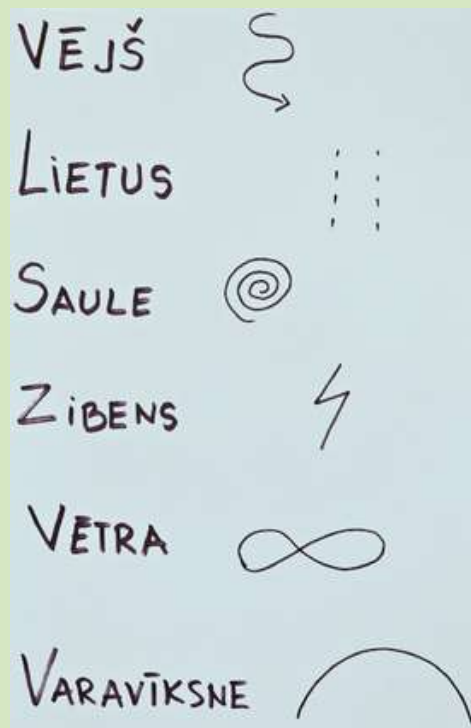 VĒJŠ
LiETUS
SAULE
ZiBENS
VĒTRA
VARAVĪKSNE